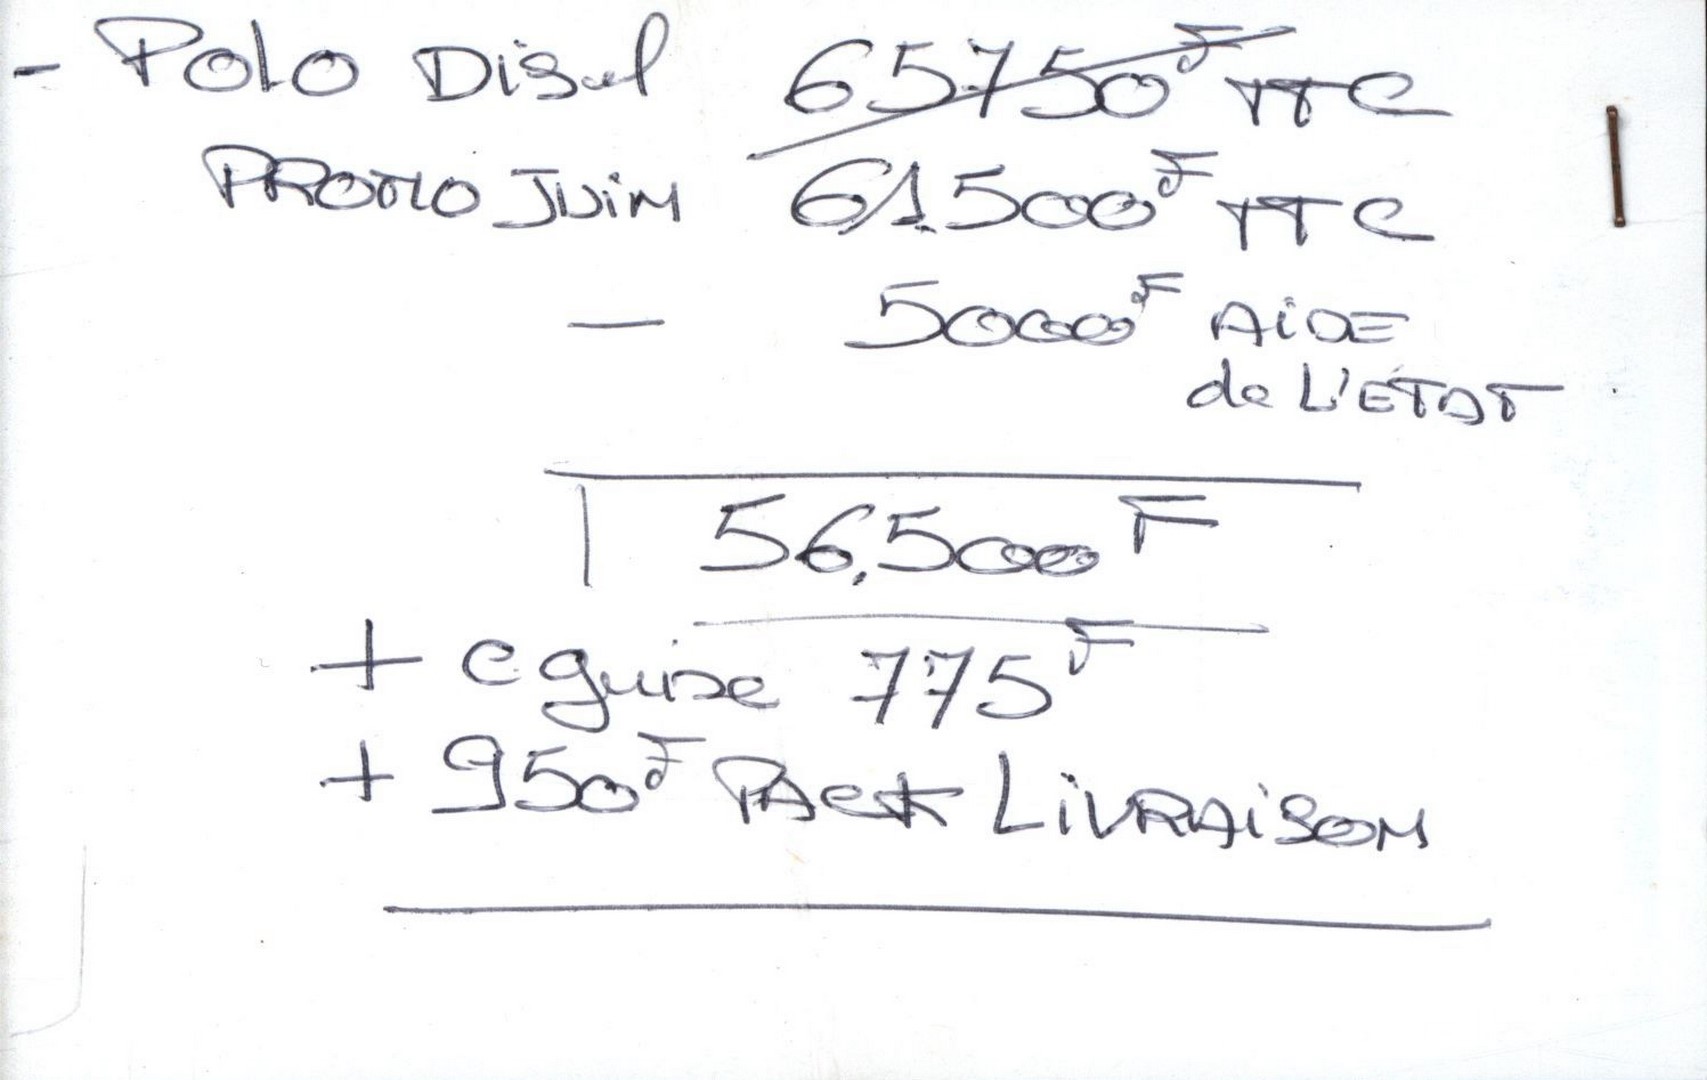 - Polo Disel 65750F TTC
PROMO JUIN 61.500F TTC
- 5000F AIDE
de L'ETAT
56.500F
+ cguise 775F
+ 950F PAck LIVRAISON